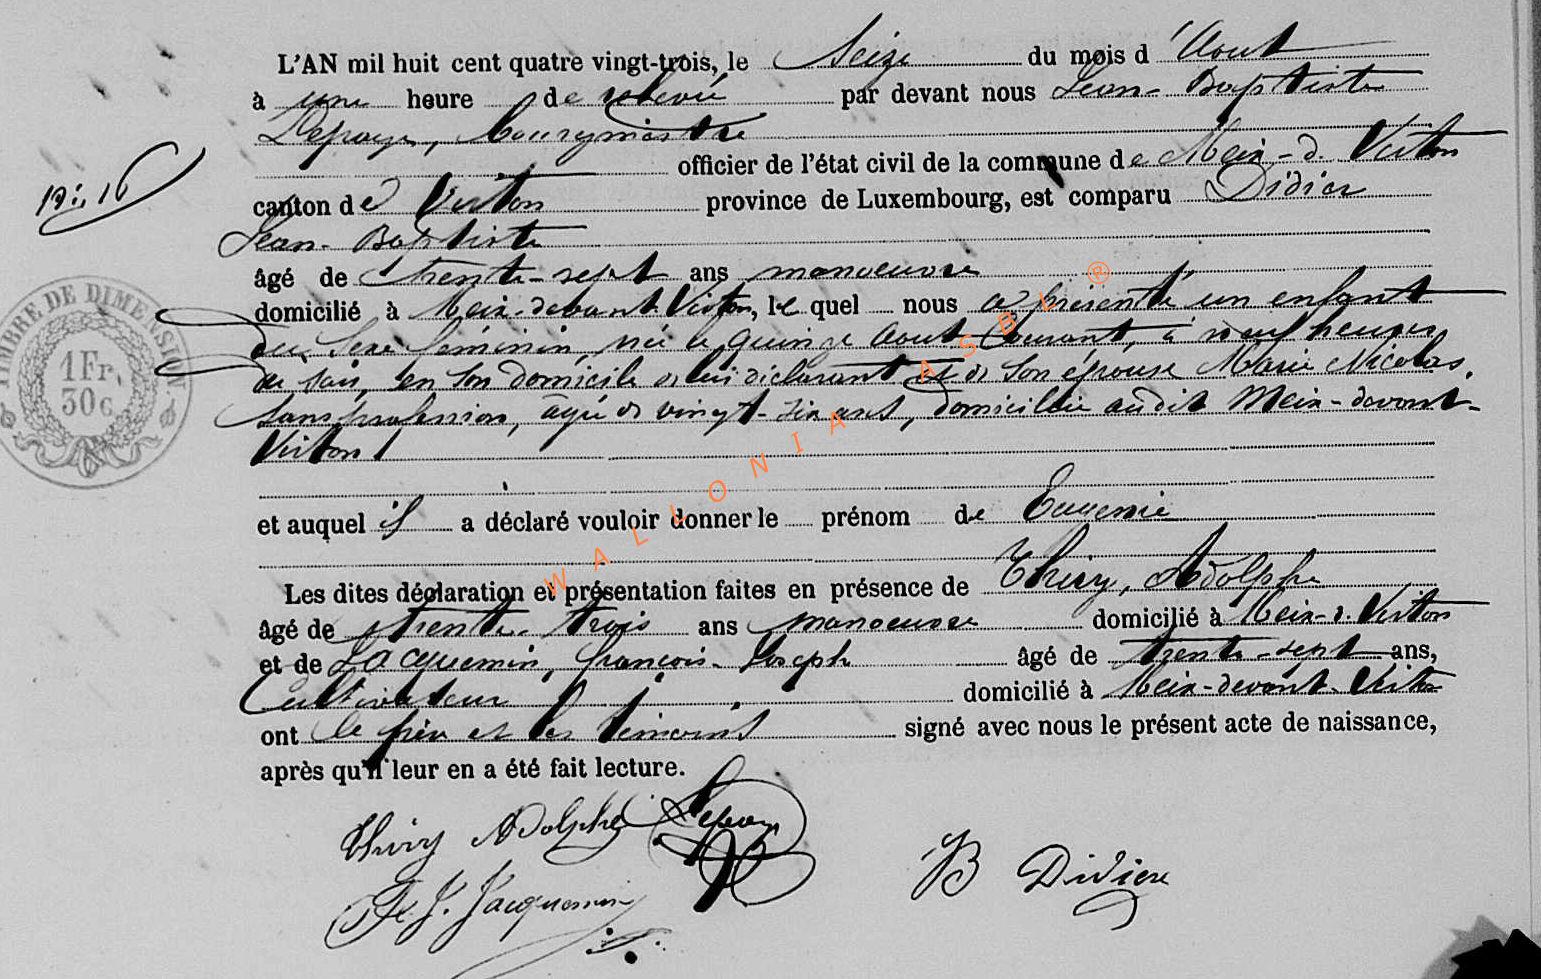 L'AN mil huit cent quatre vingt-trois, le Seize du mois d'Aout
à une heure de relevée par devant nous Jean-Baptiste
Lepage, bourgmestre
officier de l'état civil de la commune de Meix-d. Virton
canton de Virton province de Luxembourg, est comparu Didier
Jean-Baptiste
âgé de trente-sept ans manoeuvre
domicilié à Meix-devant-Virton, lequel nous a présenté un enfant
du sexe féminin, née le quinze aout courant, à neuf heures
du soir, en son domicile de lui déclarant et de son épouse Marie Nicolas,
sans profession, agée de vingt-six ans, domiciliée audit Meix-devant-
Virton
et auquel il a déclaré vouloir donner le prénom de Eugenie
Les dites déclaration et présentation faites en présence de Thiry, Adolphe
âgé de trente-trois ans manoeuvre domicilié à Meix-d. Virton
et de Jacquemin, françois-Joseph âgé de trente-sept ans,
Cultivateur domicilié à Meix-devant-Virton
ont le père et les témoins signé avec nous le présent acte de naissance,
après qu'il leur en a été fait lecture.
Thiry Adolphe
JB Didier
F. J. Jacquemin
TIMBRE DE DIMENSION
1 Fr.
30 c
WALLONIA ASBL ®